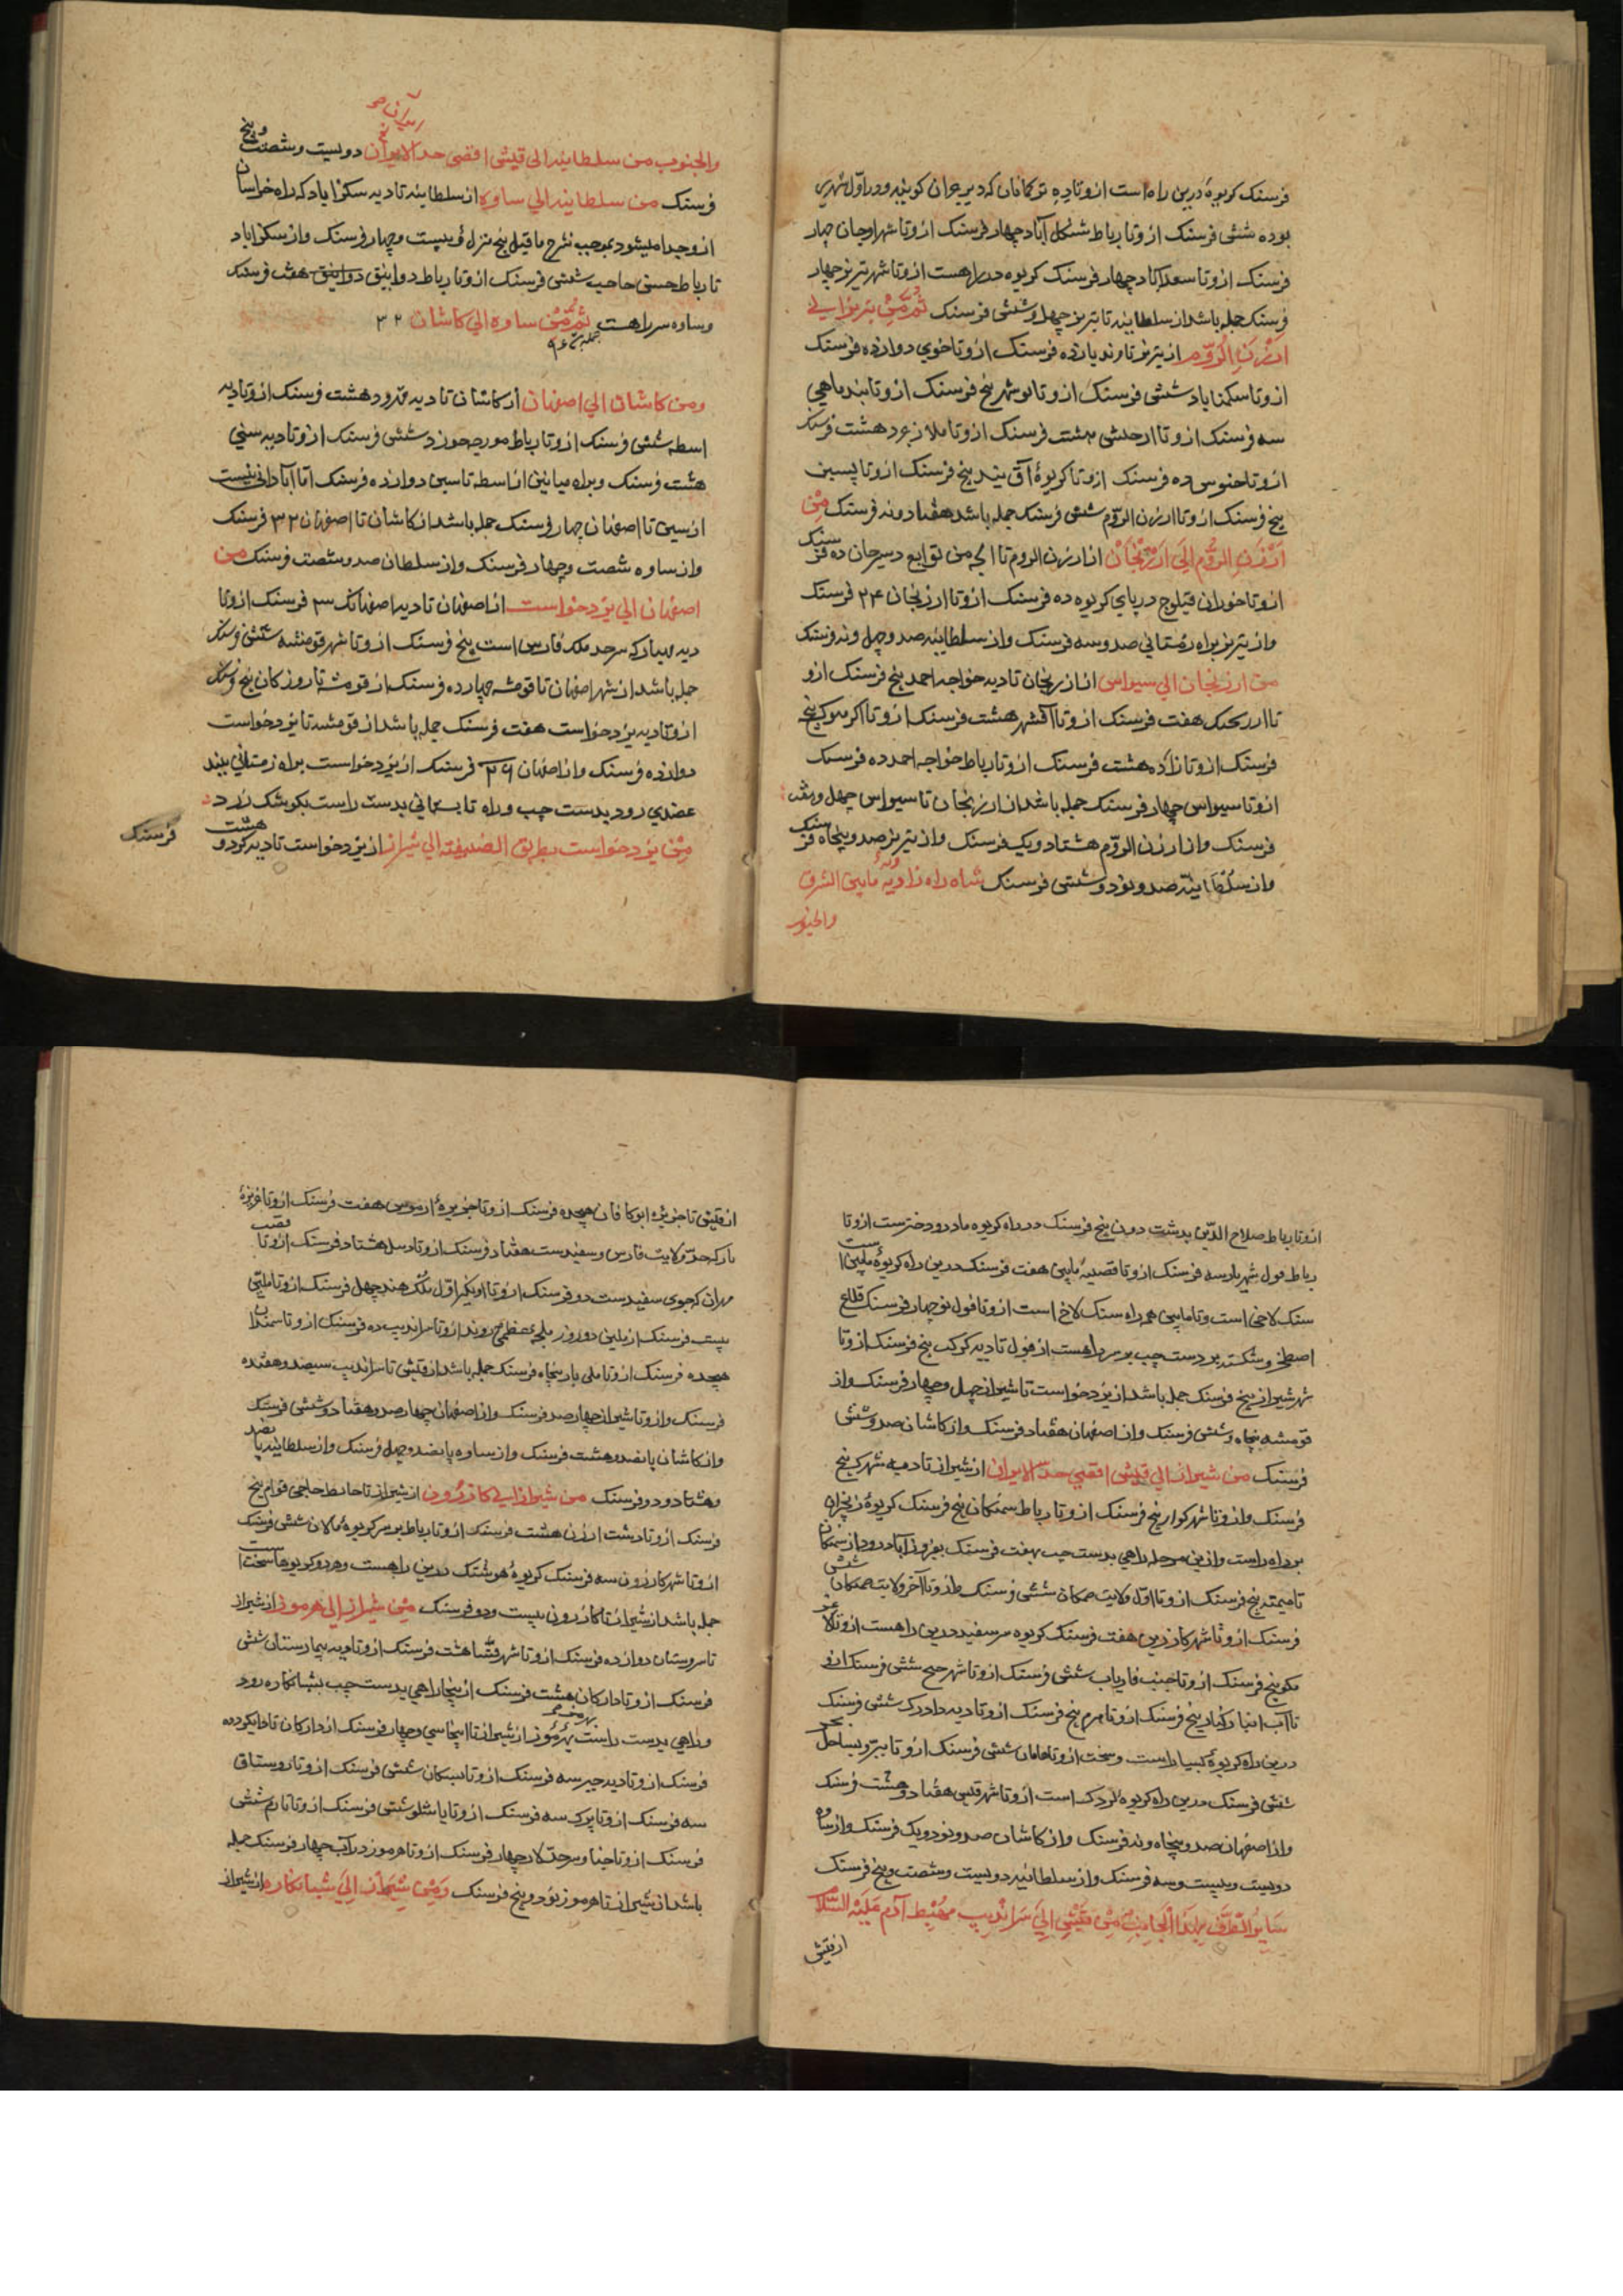 فرسنک کریوهٔ درین راه است ازو تا دیه ترکمانان که دیه خران کویند و در اول شهری
بوده شش فرسنک ازو تا رباط شنکل آباد چهار فرسنک ازو تا شهر اوجان چهار
فرسنک ازو تا سعدآباد چهار فرسنک کریوه در راهست ازو تا شهر تبریز چهار
فرسنک جمله باشد از سلطانیه تا تبریز چهل و شش فرسنک ثم من تبریز الی
ارزن الروم از تبریز تا مرند یازده فرسنک ازو تا خوی دوازده فرسنک
ازو تا سکمناباد شش فرسنک ازو تا نوشهر پنج فرسنک ازو تا بند ماهی
سه فرسنک ازو تا ارجیش هشت فرسنک ازو تا ملازجرد هشت فرسنک
ازو تا خنوس ده فرسنک ازو تا کریوهٔ آق بند پنج فرسنک ازو تا پسین
پنج فرسنک ازو تا ارزن الروم شش فرسنک جمله باشد هفتاد و نه فرسنک من
ارزن الروم الی ارزنجان از ارزن الروم تا الجه من توابع دسرجان ده فرسنک
ازو تا خوران قیلوج در پای کریوه ده فرسنک ازو تا ارزنجان ۲۴ فرسنک
و از تبریز براه زمستانی صد و سه فرسنک و از سلطانیه صد و چهل و نه فرسنک
من ارزنجان الی سیواس از ارزنجان تا دیه خواجه احمد پنج فرسنک ازو
تا هفت فرسنک ازو تا آقشهر هشت فرسنک ازو تا پنج
فرسنک ازو تا زاده هشت فرسنک ازو تا رباط خواجه احمد ده فرسنک
ازو تا سیواس چهار فرسنک جمله باشد از ارزنجان تا سیواس چهل و هفت
فرسنک و از ارزن الروم هشتاد و یک فرسنک و از تبریز صد و پنجاه فرسنک
و از سلطانیه صد و نود و شش فرسنک شاه راه زاویه ما بین الشرق
والجنوب
والجنوب من سلطانیه الی قیش اقصی حد الایران دویست و شصت و پنج
فرسنک من سلطانیه الی ساوه از سلطانیه تا دیه سکزاباد که راه خراسان
ازو جدا میشود بموجب شرح ما قبل پنج منزل و بیست و چهار فرسنک و از سکزاباد
تا رباط حسن حاجب شش فرسنک ازو تا رباط دوانیق دوانیق هفت فرسنک
و ساوه سر راهست ثم من ساوه الی کاشان ۳۲
و من کاشان الی اصفهان از کاشان تا دیه قهرود هشت فرسنک ازو تا دیه
اسطه شش فرسنک ازو تا رباط مورچه خورد شش فرسنک ازو تا دیه سین
هشت فرسنک و براه میانین از اسطه تا سین دوازده فرسنک اما آبادانی نیست
از سین تا اصفهان چهار فرسنک جمله باشد از کاشان تا اصفهان ۳۲ فرسنک
و از ساوه شصت و چهار فرسنک و از سلطان صد و شصت فرسنک من
اصفهان الی یزدخواست از اصفهان تا دیه اصفهانک ۳ فرسنک ازو تا
دیه مهیار که سرحد ملک فارس است پنج فرسنک ازو تا شهر قومشه شش فرسنک
جمله باشد از شهر اصفهان تا قومشه چهارده فرسنک از قومشه تا روزکان پنج فرسنک
ازو تا دیه یزدخواست هفت فرسنک جمله باشد از قومشه تا یزدخواست
دوازده فرسنک و از اصفهان ۲۶ فرسنک از یزدخواست براه زمستانی بیند
عضدی رود بدست چپ و راه تابستانی بدست راست بکوشک زرد
من یزدخواست بطریق الصیفیه الی شیراز از یزدخواست تا دیه کردو هشت
فرسنک
ازو تا رباط صلاح الدین بدشت دون پنج فرسنک در راه کریوه مادر و دختر ست ازو تا
رباط مول شهریار سه فرسنک ازو تا قصبه مایین هفت فرسنک درین راه کریوهٔ مایین است
سنک لاخی است و تا مایین همه راه سنک لاخ است ازو تا فول نو چهار فرسنک قلاع
اصطخر و شکسته بر دست چپ بر سر راهست از فول تا دیه کرکب پنج فرسنک ازو تا
شهر شیراز پنج فرسنک جمله باشد از یزدخواست تا شیراز چهل و چهار فرسنک و از
قومشه پنجاه و شش فرسنک و از اصفهان هفتاد فرسنک و از کاشان صد و شش
فرسنک من شیراز الی قیش اقصی حد الایران از شیراز تا دیه شهرک پنج
فرسنک و ازو تا شهر کوار پنج فرسنک ازو تا رباط سمنکان پنج فرسنک کریوهٔ زنجیران
بر راه راست و ازین مرحله راهی بدست چپ بهفت فرسنک بفیروزآباد رود از سمنکان
تا میمند پنج فرسنک ازو تا اول ولایت صمکان شش فرسنک ازو تا آخر ولایت صمکان شش
فرسنک ازو تا شهر کارزین هفت فرسنک کریوه سر سفید درین راهست ازو تا لاغر
پنج فرسنک ازو تا فاریاب شش فرسنک ازو تا شهر شش فرسنک ازو
تا آب انبار کنار پنج فرسنک ازو تا هرم پنج فرسنک ازو تا دیه دادرک شش فرسنک
درین راه کریوهٔ بسیار است و سخت ازو تا ماهان شش فرسنک ازو تا بساحل بحر
شش فرسنک درین راه کریوه لردک است ازو تا شهر قیس هفتاد و هشت فرسنک
و از اصفهان صد و پنجاه و نه فرسنک و از کاشان صد و نود و یک فرسنک و از ساوه
دویست و بیست و سه فرسنک و از سلطانیه دویست و شصت و پنج فرسنک
سایر الطرق بهذا الجانب من قیش الی سراندیب مهبط آدم علیه السلام
از قیش
از قیش تا جزیره ابرکافان هیجده فرسنک ازو تا جزیرهٔ ارموس هفت فرسنک ازو تا جزیرهٔ
بار که حد ولایت فارس و سفیدست هفتاد فرسنک ازو تا دیبل هشتاد فرسنک ازو تا قصب
مهران که جوی سفیدست دو فرسنک ازو تا اوبکیر اول ملک هند چهل فرسنک ازو تا ملین
بیست فرسنک از ملین دو روز بلجه عظمی روند ازو تا سراندیب ده فرسنک ازو تا سمندان
هیجده فرسنک ازو تا ملی بار پنجاه فرسنک جمله باشد از قیش تا سراندیب سیصد و هفده
فرسنک و ازو تا شیراز چهارصد فرسنک و از اصفهان چهارصد و هفتاد و شش فرسنک
و از کاشان پانصد و هشت فرسنک و از ساوه پانصد و چهل فرسنک و از سلطانیه پانصد
و هشتاد و دو فرسنک من شیراز الی کازرون از شیراز تا حایط حاجی قوام پنج
فرسنک ازو تا دشت ارزن هشت فرسنک ازو تا رباط بر سر کریوهٔ مالان شش فرسنک
ازو تا شهر کازرون سه فرسنک کریوهٔ هوشنک درین راهست و هر دو کریوها سخت است
جمله باشد از شیراز تا کازرون بیست و دو فرسنک من شیراز الی هرموز از شیراز
تا سروستان دوازده فرسنک ازو تا شهر فسا هشت فرسنک ازو تا دیه بیمارستان شش
فرسنک ازو تا دارکان هشت فرسنک ازینجا راهی بدست چپ بشبانکاره رود
و راهی بدست راست بهرموز از شیراز تا اینجا سی و چهار فرسنک از دارکان تا دابکرد ده
فرسنک ازو تا دیه خیر سه فرسنک ازو تا شبکان شش فرسنک ازو تا روستاق
سه فرسنک ازو تا پرک سه فرسنک ازو تا یاشلو شش فرسنک ازو تا تارم شش
فرسنک ازو تا جناو سرحد لار چهار فرسنک ازو تا هرموز در آب چهار فرسنک جمله
باشد از شیراز تا هرموز نود و پنج فرسنک و من شیراز الی شبانکاره از شیراز